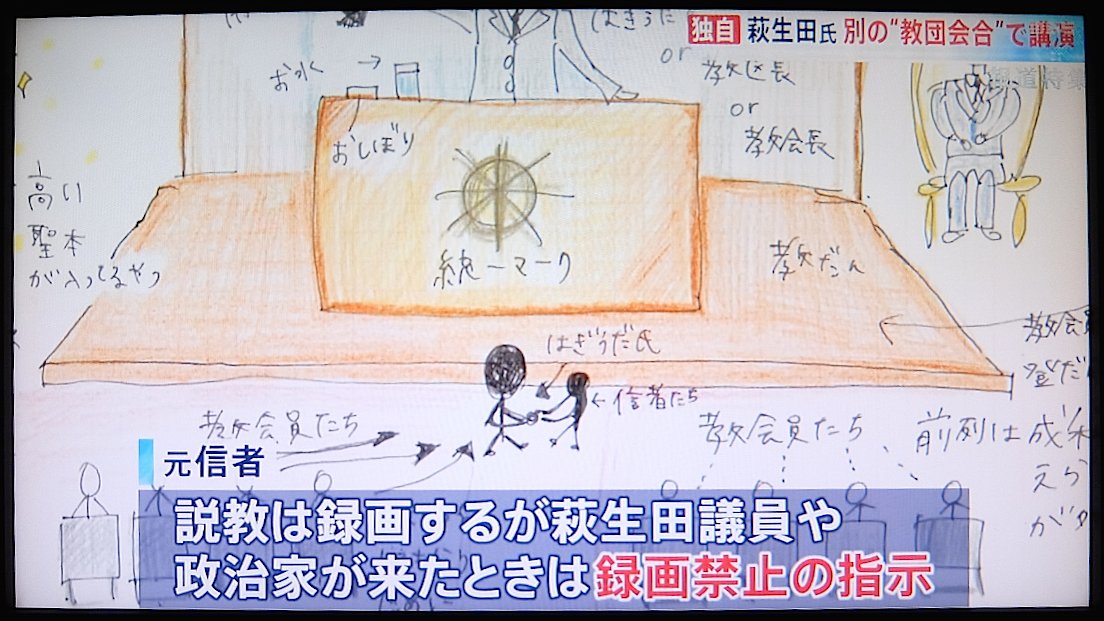 独自 萩生田氏 別の“教団会合”で講演
報道特集
はぎうだ
or
教区長
or
教会長
お水
→
おしぼり
高い
聖本
が入ってるやつ
統一マーク
教だん
教会員
登だ
はぎうだ氏
←信者たち
教会員たち
教会員たち
前列は成
えら
が
元信者
説教は録画するが萩生田議員や
政治家が来たときは録画禁止の指示